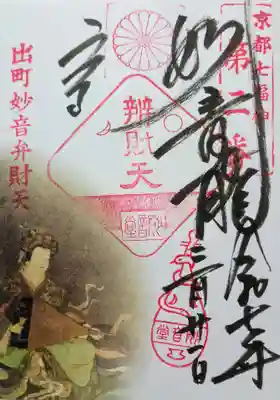 京都七福神
第二番
妙音
令和七年
三月廿一日
辨財天
妙音堂
出町妙音弁財天